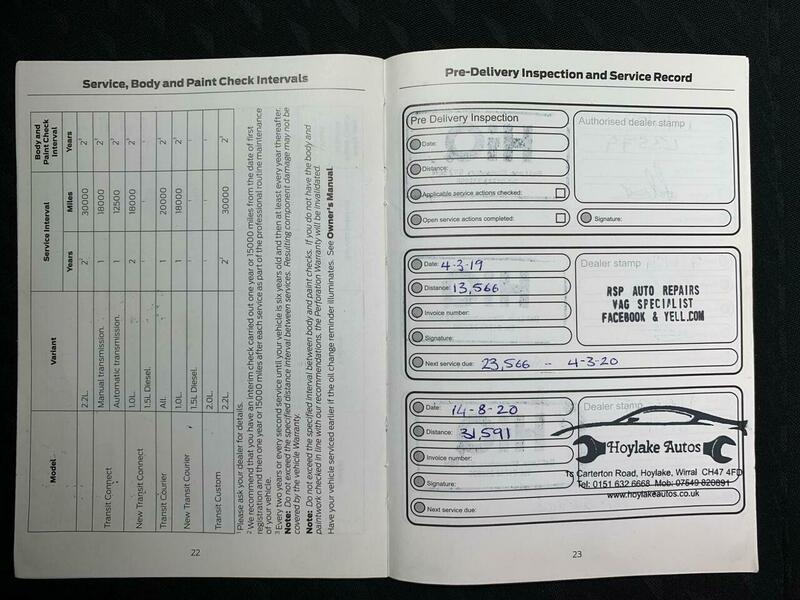 Service, Body and Paint Check Intervals
Model Variant Service Interval Body and Paint Check Interval
Years Miles Years
2.2L. 2² 30000 2³
Transit Connect Manual transmission. 1 18000 2³
Automatic transmission. 1 12500 2³
New Transit Connect 1.0L. 2 18000 2³
1.5L Diesel.
Transit Courier All. 1 20000 2³
New Transit Courier 1.0L. 1 18000 2³
1.5L Diesel.
2.0L.
Transit Custom 2.2L. 2² 30000 2³
¹ Please ask your dealer for details.
² We recommend that you have an interim check carried out one year or 15000 miles from the date of first
registration and then one year or 15000 miles after each service as part of the professional routine maintenance
of your vehicle.
³ Every two years or every second service until your vehicle is six years old and then at least every year thereafter.
Note: Do not exceed the specified distance interval between services. Resulting component damage may not be
covered by the vehicle Warranty.
Note: Do not exceed the specified interval between body and paint checks. If you do not have the body and
paintwork checked in line with our recommendations, the Perforation Warranty will be invalidated.
Have your vehicle serviced earlier if the oil change reminder illuminates. See Owner's Manual.
22
Pre-Delivery Inspection and Service Record
Pre Delivery Inspection
Date:
Distance:
Applicable service actions checked:
Open service actions completed:
Authorised dealer stamp
Signature:
Date: 4-3-19
Distance: 13,566
Invoice number:
Signature:
Next service due: 23,566 - 4-3-20
Dealer stamp
RSP AUTO REPAIRS
VAG SPECIALIST
FACEBOOK & YELL.COM
Date: 14-8-20
Distance: 31,591
Invoice number:
Signature:
Next service due:
Dealer stamp
Hoylake Autos
1c Carterton Road, Hoylake, Wirral CH47 4FD
Tel: 0151 632 6668 Mob: 07549 820891
www.hoylakeautos.co.uk
23